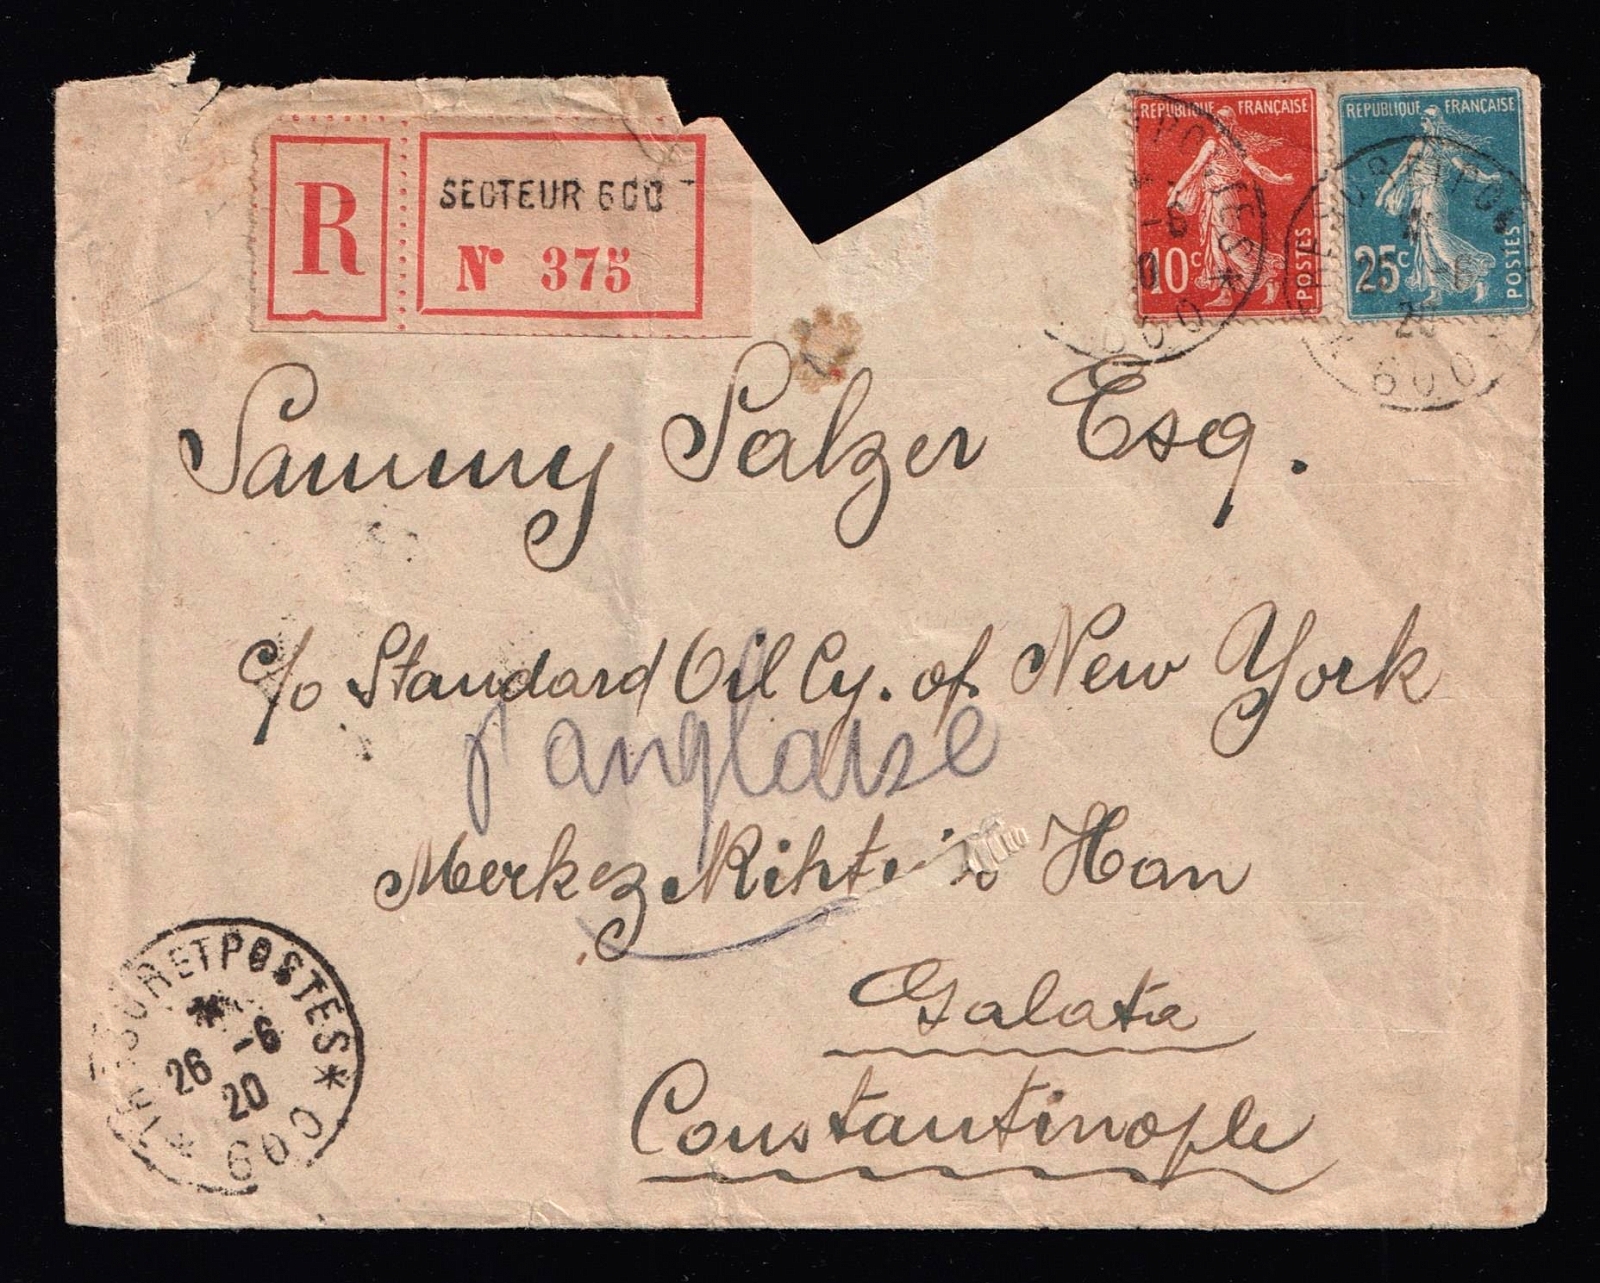 R
SECTEUR 600
N° 375
REPUBLIQUE FRANÇAISE
10c
POSTES
REPUBLIQUE FRANÇAISE
25c
POSTES
600
25 -6
20
600
Sammy Salzer Esq.
c/o Standard Oil Cy. of New York
anglaise
Merkez Han
Galata
Constantinople
TRESOR ET POSTES *
26 -6
20
* 600